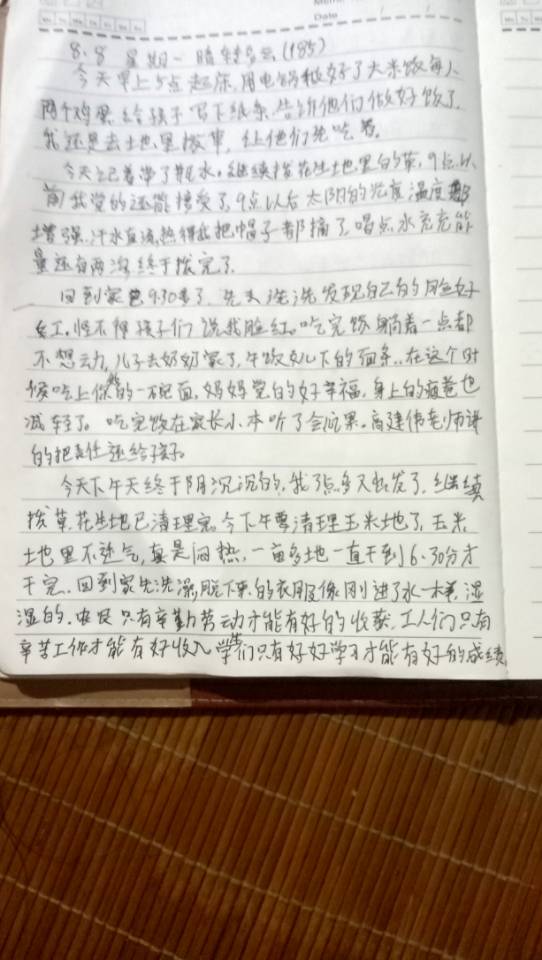 Date
8.8 星期一 晴转多云 (185)
今天早上5点起床,用电锅做好了大米饭每人
两个鸡蛋.给孩子写下纸条.告诉他们做好饭了.
我还是去土地里拔草,让他们先吃着.
今天记着带了瓶水.继续拔花生土地里的草,9点以
前我觉的还能接受了,9点以后太阳的光度温度都
增强.汗水直流,热得我把帽子都摘了,喝点水充充能
量还有两沟终于拔完了.
回到家已9.30多了.先去洗洗发现自己的脸好
红.怪不得孩子们说我脸红.吃完饭躺着一点都
不想动,儿子去奶奶家了,午饭女儿下的面条..在这个时
候吃上你做的一碗面,妈妈觉的好幸福,身上的疲惫也
减轻了。吃完饭在家长小本听了会成果.高建伟老师讲
的把责任还给孩子。
今天下午天终于阴沉沉的,我3点多又出发了.继续
拔草,花生地已清理完今下午要清理玉米地了,玉米
土地里不透气,真是闷热,一亩多地一直干到6.30分才
干完..回到家先洗澡,脱下来的衣服像刚进了水一样,湿
湿的.农民只有辛勤劳动才能有好的收获.工人们只有
辛苦工作才能有好收入 学生们只有好好学习才能有好的成绩